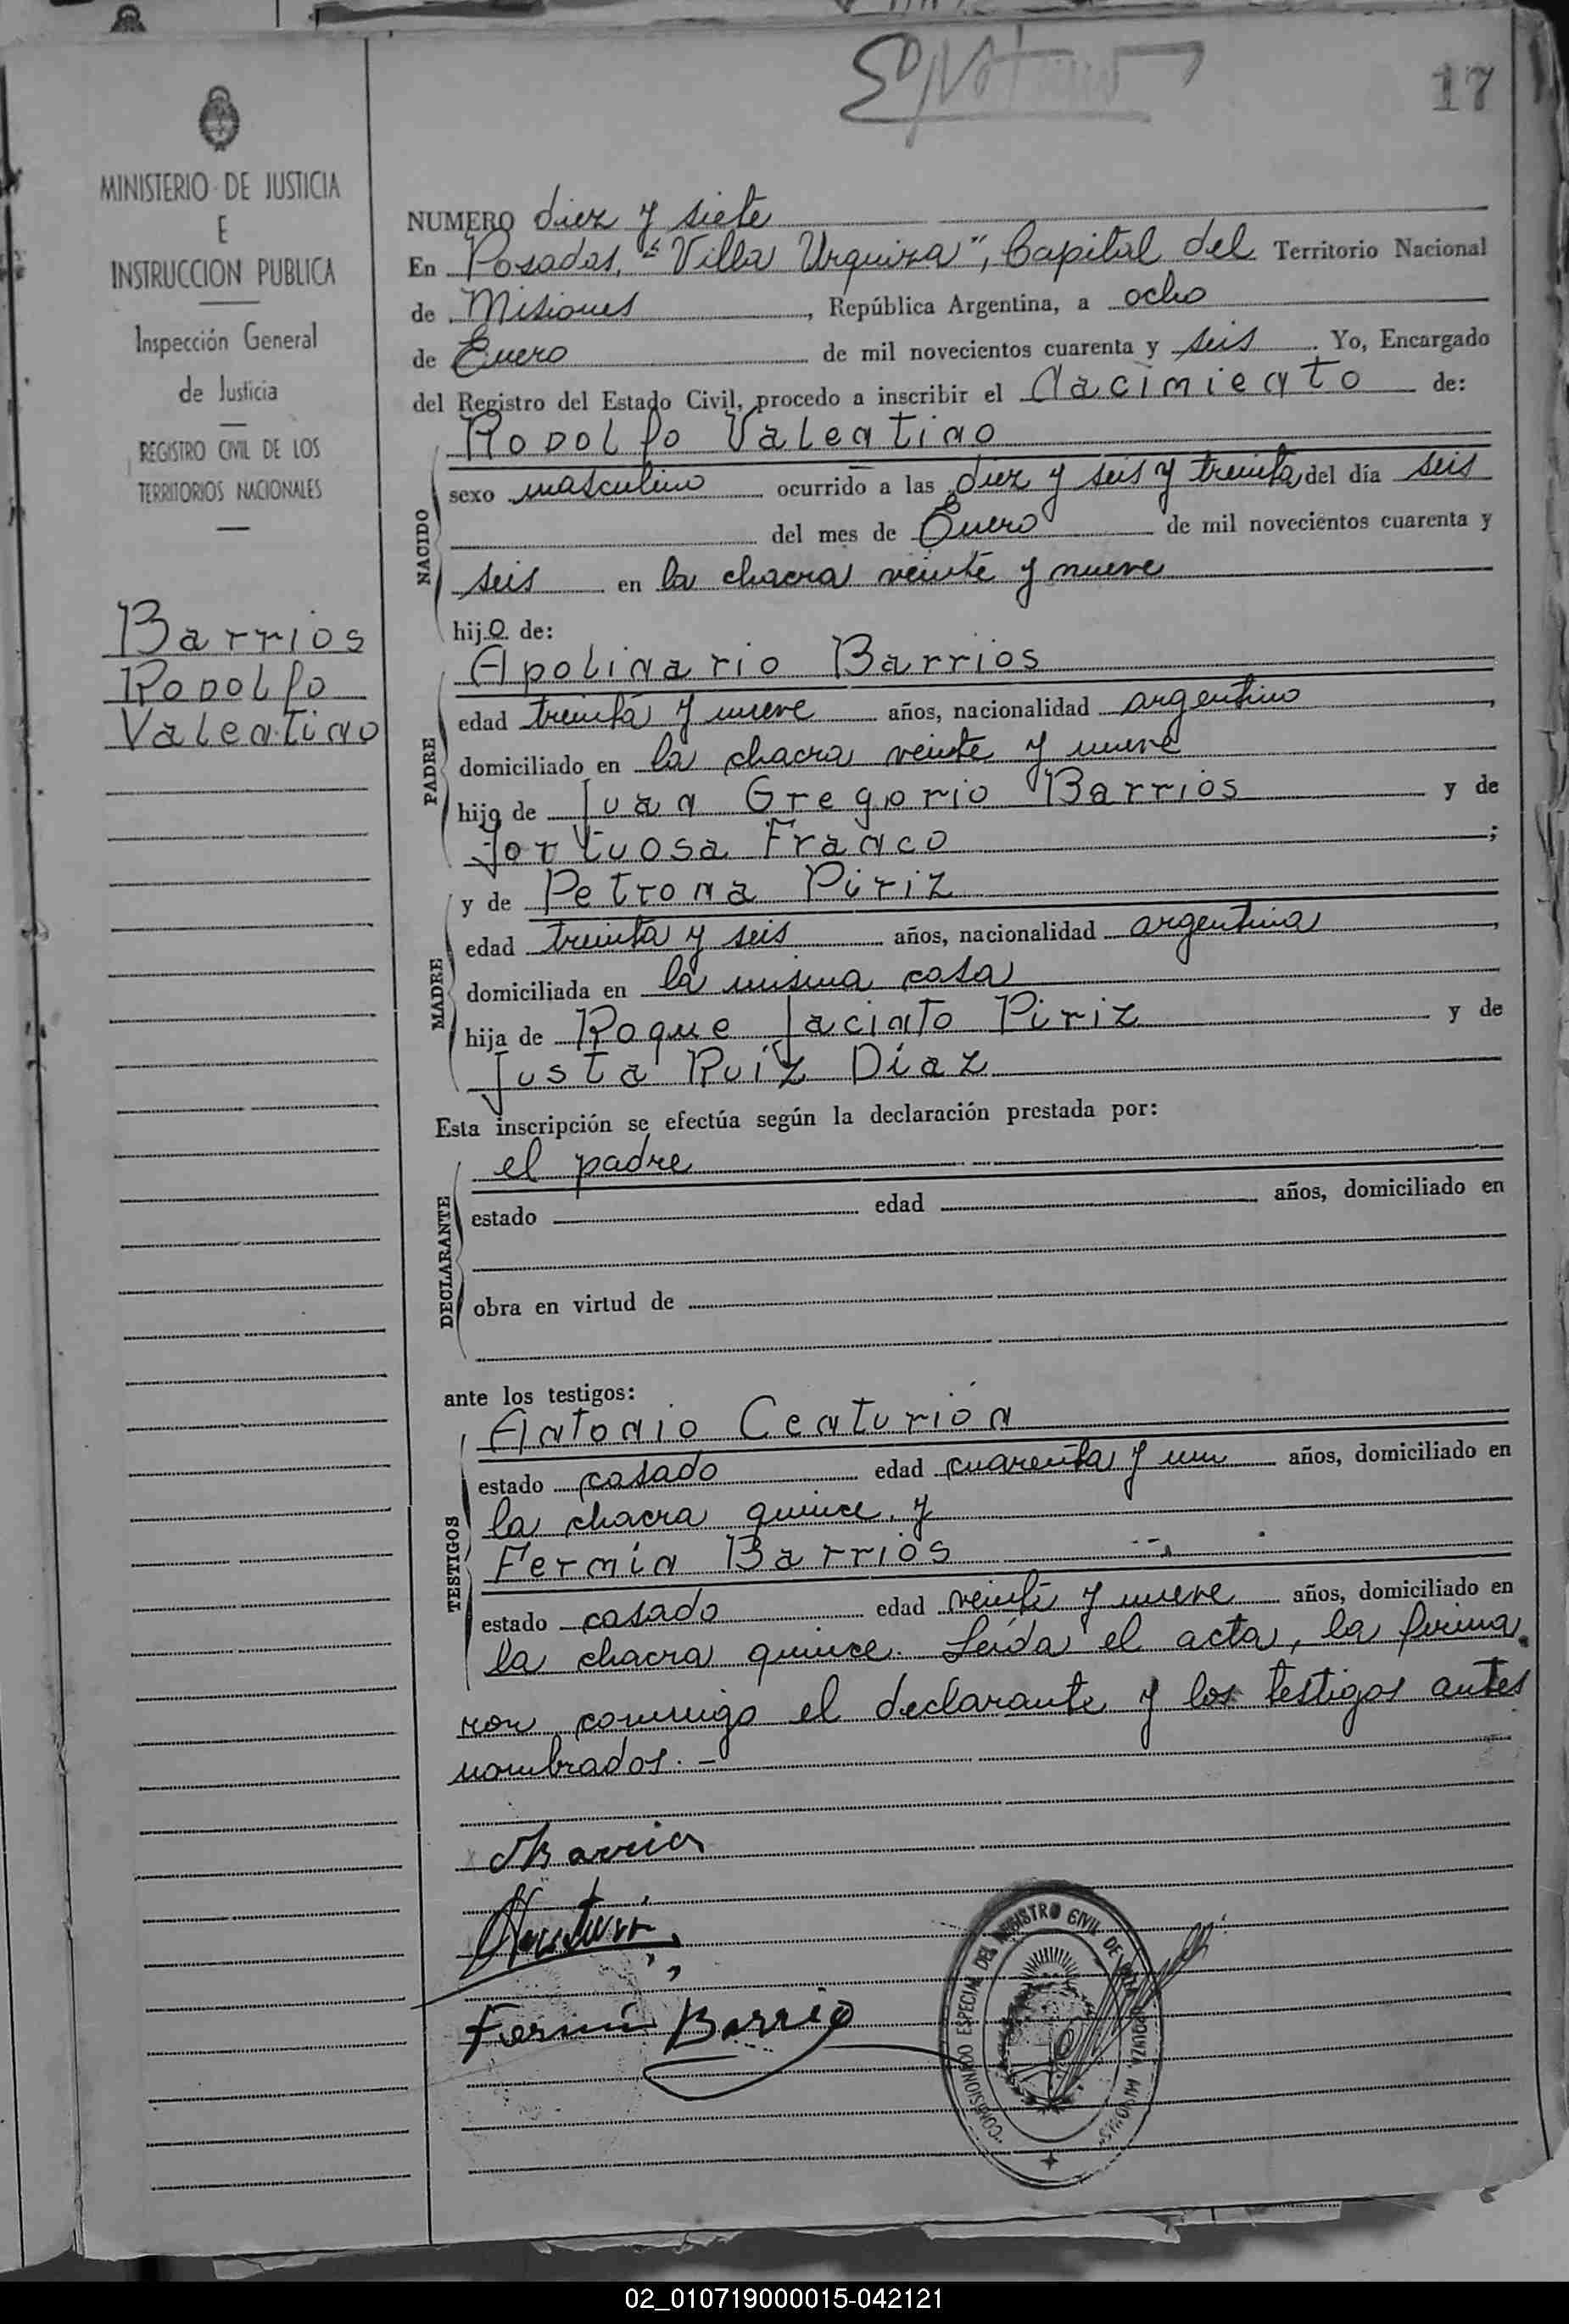 17
MINISTERIO DE JUSTICIA
E
INSTRUCCION PUBLICA
Inspección General
de Justicia
REGISTRO CIVIL DE LOS
TERRITORIOS NACIONALES
Barrios
Rodolfo
Valentino
NUMERO diez y siete
En Posadas, "Villa Urquiza", Capital del Territorio Nacional
de Misiones, República Argentina, a ocho
de Enero de mil novecientos cuarenta y seis. Yo, Encargado
del Registro del Estado Civil, procedo a inscribir el Nacimiento de:
Rodolfo Valentino
NACIDO
sexo masculino ocurrido a las diez y seis y treinta del día seis
del mes de Enero de mil novecientos cuarenta y
seis en la chacra veinte y nueve
hijo de:
Apolinario Barrios
PADRE
edad treinta y nueve años, nacionalidad argentino,
domiciliado en la chacra veinte y nueve
hijo de Juan Gregorio Barrios y de
Tortuosa Franco;
y de Petrona Piriz
MADRE
edad treinta y seis años, nacionalidad argentina,
domiciliada en la misma casa
hija de Roque Jacinto Piriz y de
Justa Ruíz Díaz
Esta inscripción se efectúa según la declaración prestada por:
el padre
DECLARANTE
estado edad años, domiciliado en
obra en virtud de
ante los testigos:
Antonio Centurión
TESTIGOS
estado casado edad cuarenta y un años, domiciliado en
la chacra quince, y
Fermín Barrios
estado casado edad veinte y nueve años, domiciliado en
la chacra quince. Leída el acta, la firma
ron conmigo el declarante y los testigos antes
nombrados.-
Barrios
Fermin Barrio
COMISIONADO ESPECIAL DEL REGISTRO CIVIL DE VILLA URQUIZA, MISIONES
02_010719000015-042121